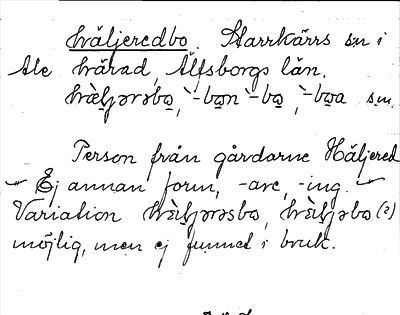 häljeredbo. Starrkärrs sn i
Ale härad, Älfsborgs län.
hæljərəbo, -bon -bo, -boa sm.
Person från gårdarne Häljered
Ej annan form, -are, -ing.
Variation hæljərəsbo, hæljəbo (?)
möjlig, men ej funned i bruk.